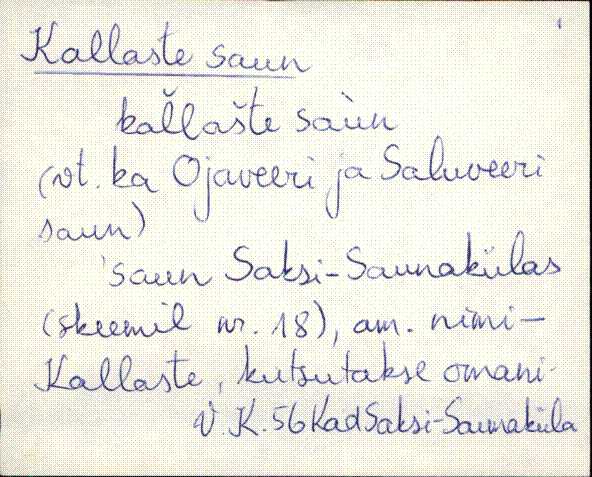 Kallaste saun
kal̆laš̆te saùn
(vt. ka Ojaveeri ja Saluveeri
saun)
'saun Saksi-Saunakülas
(skeemil nr. 18), am. nimi-
Kallaste, kutsutakse omani-
V. K. 56 Kad Saksi-Saunaküla